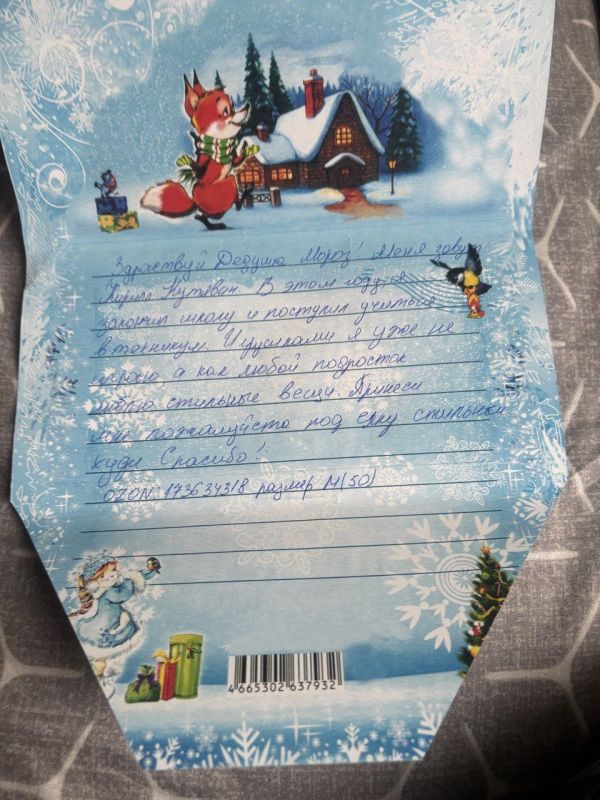 Здравствуй Дедушка Мороз! Меня зовут
Кирилл В этом году я
закончил школу и поступил учиться
в техникум. Игрушками я уже не
играю, а как любой подросток
люблю стильные вещи. Принеси
мне пожалуйста под ёлку стильный
худи. Спасибо!
OZON: 173634318 размер М(50)
4 665302 637932